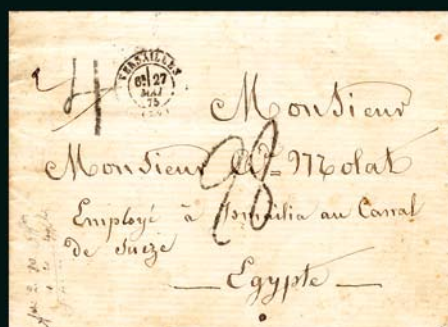 4
VERSAILLES
6E 27
MAI
75
Monsieur
Monsieur Molat
28
Employé à Ismaïlia au Canal
de Sueze
— Egypte —